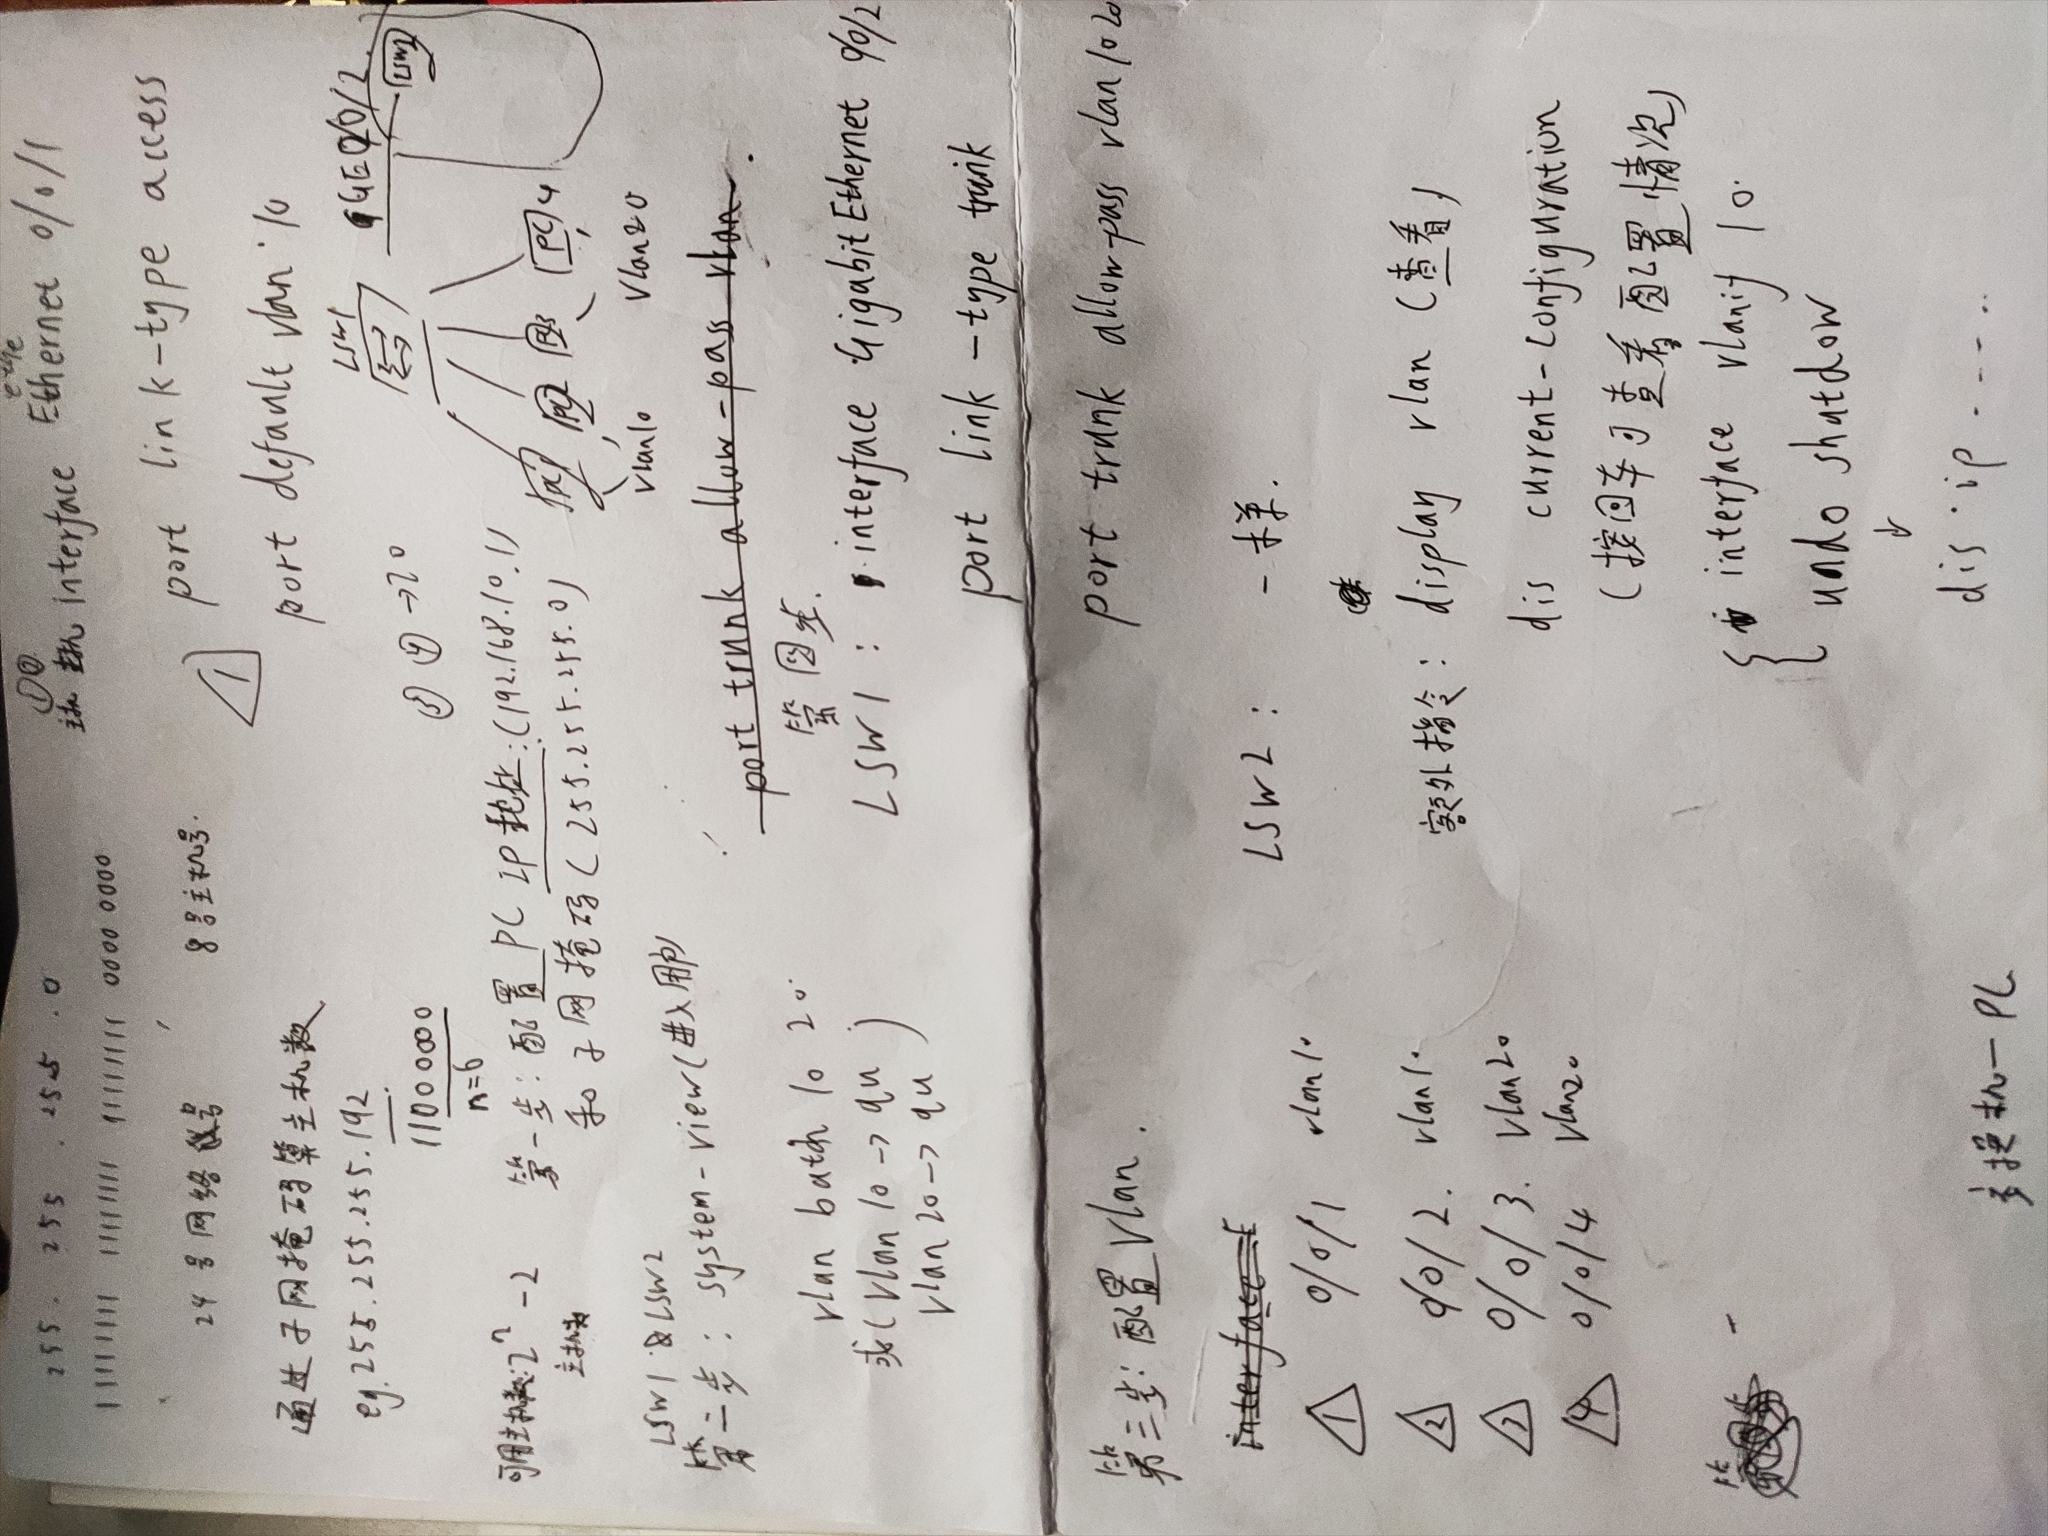 255 . 255 . 255 . 0
11111111 11111111 11111111 0000 0000
24号网络号
8号主机号.
通过子网掩码算主机数
eg.255.255.255.192
11000000
n=6
可用主机数:2ⁿ-2
主机数
第一步: 配置 PC IP地址:(192.168.10.1)
和子网掩码(255.255.255.0)
LSW1 & LSW2
第二步: system-view(进入用户)
vlan batch 10 20
或(vlan 10 -> qu
vlan 20 -> qu)
①②
interface Ethernet 0/0/1
port link-type access
① port default vlan 10
③ ④ →20
LSW1
GE0/0/2
LSW2
PC1 PC2 PC3 PC4
vlan10
vlan20
port trunk allow-pass vlan
第四步.
LSW1: interface GigabitEthernet 0/0/2
port link-type trunk
port trunk allow-pass vlan 10 20
LSW2: 一样.
额外指令: display vlan (查看)
dis current-configuration
(按回车可查看配置情况)
interface vlanif 10
undo shutdown
↓
dis ip ----..
第三步: 配置 Vlan.
interface E
① 0/0/1 vlan10
② 0/0/2. vlan10
③ 0/0/3. Vlan20
④ 0/0/4 Vlan20
交换机—PC